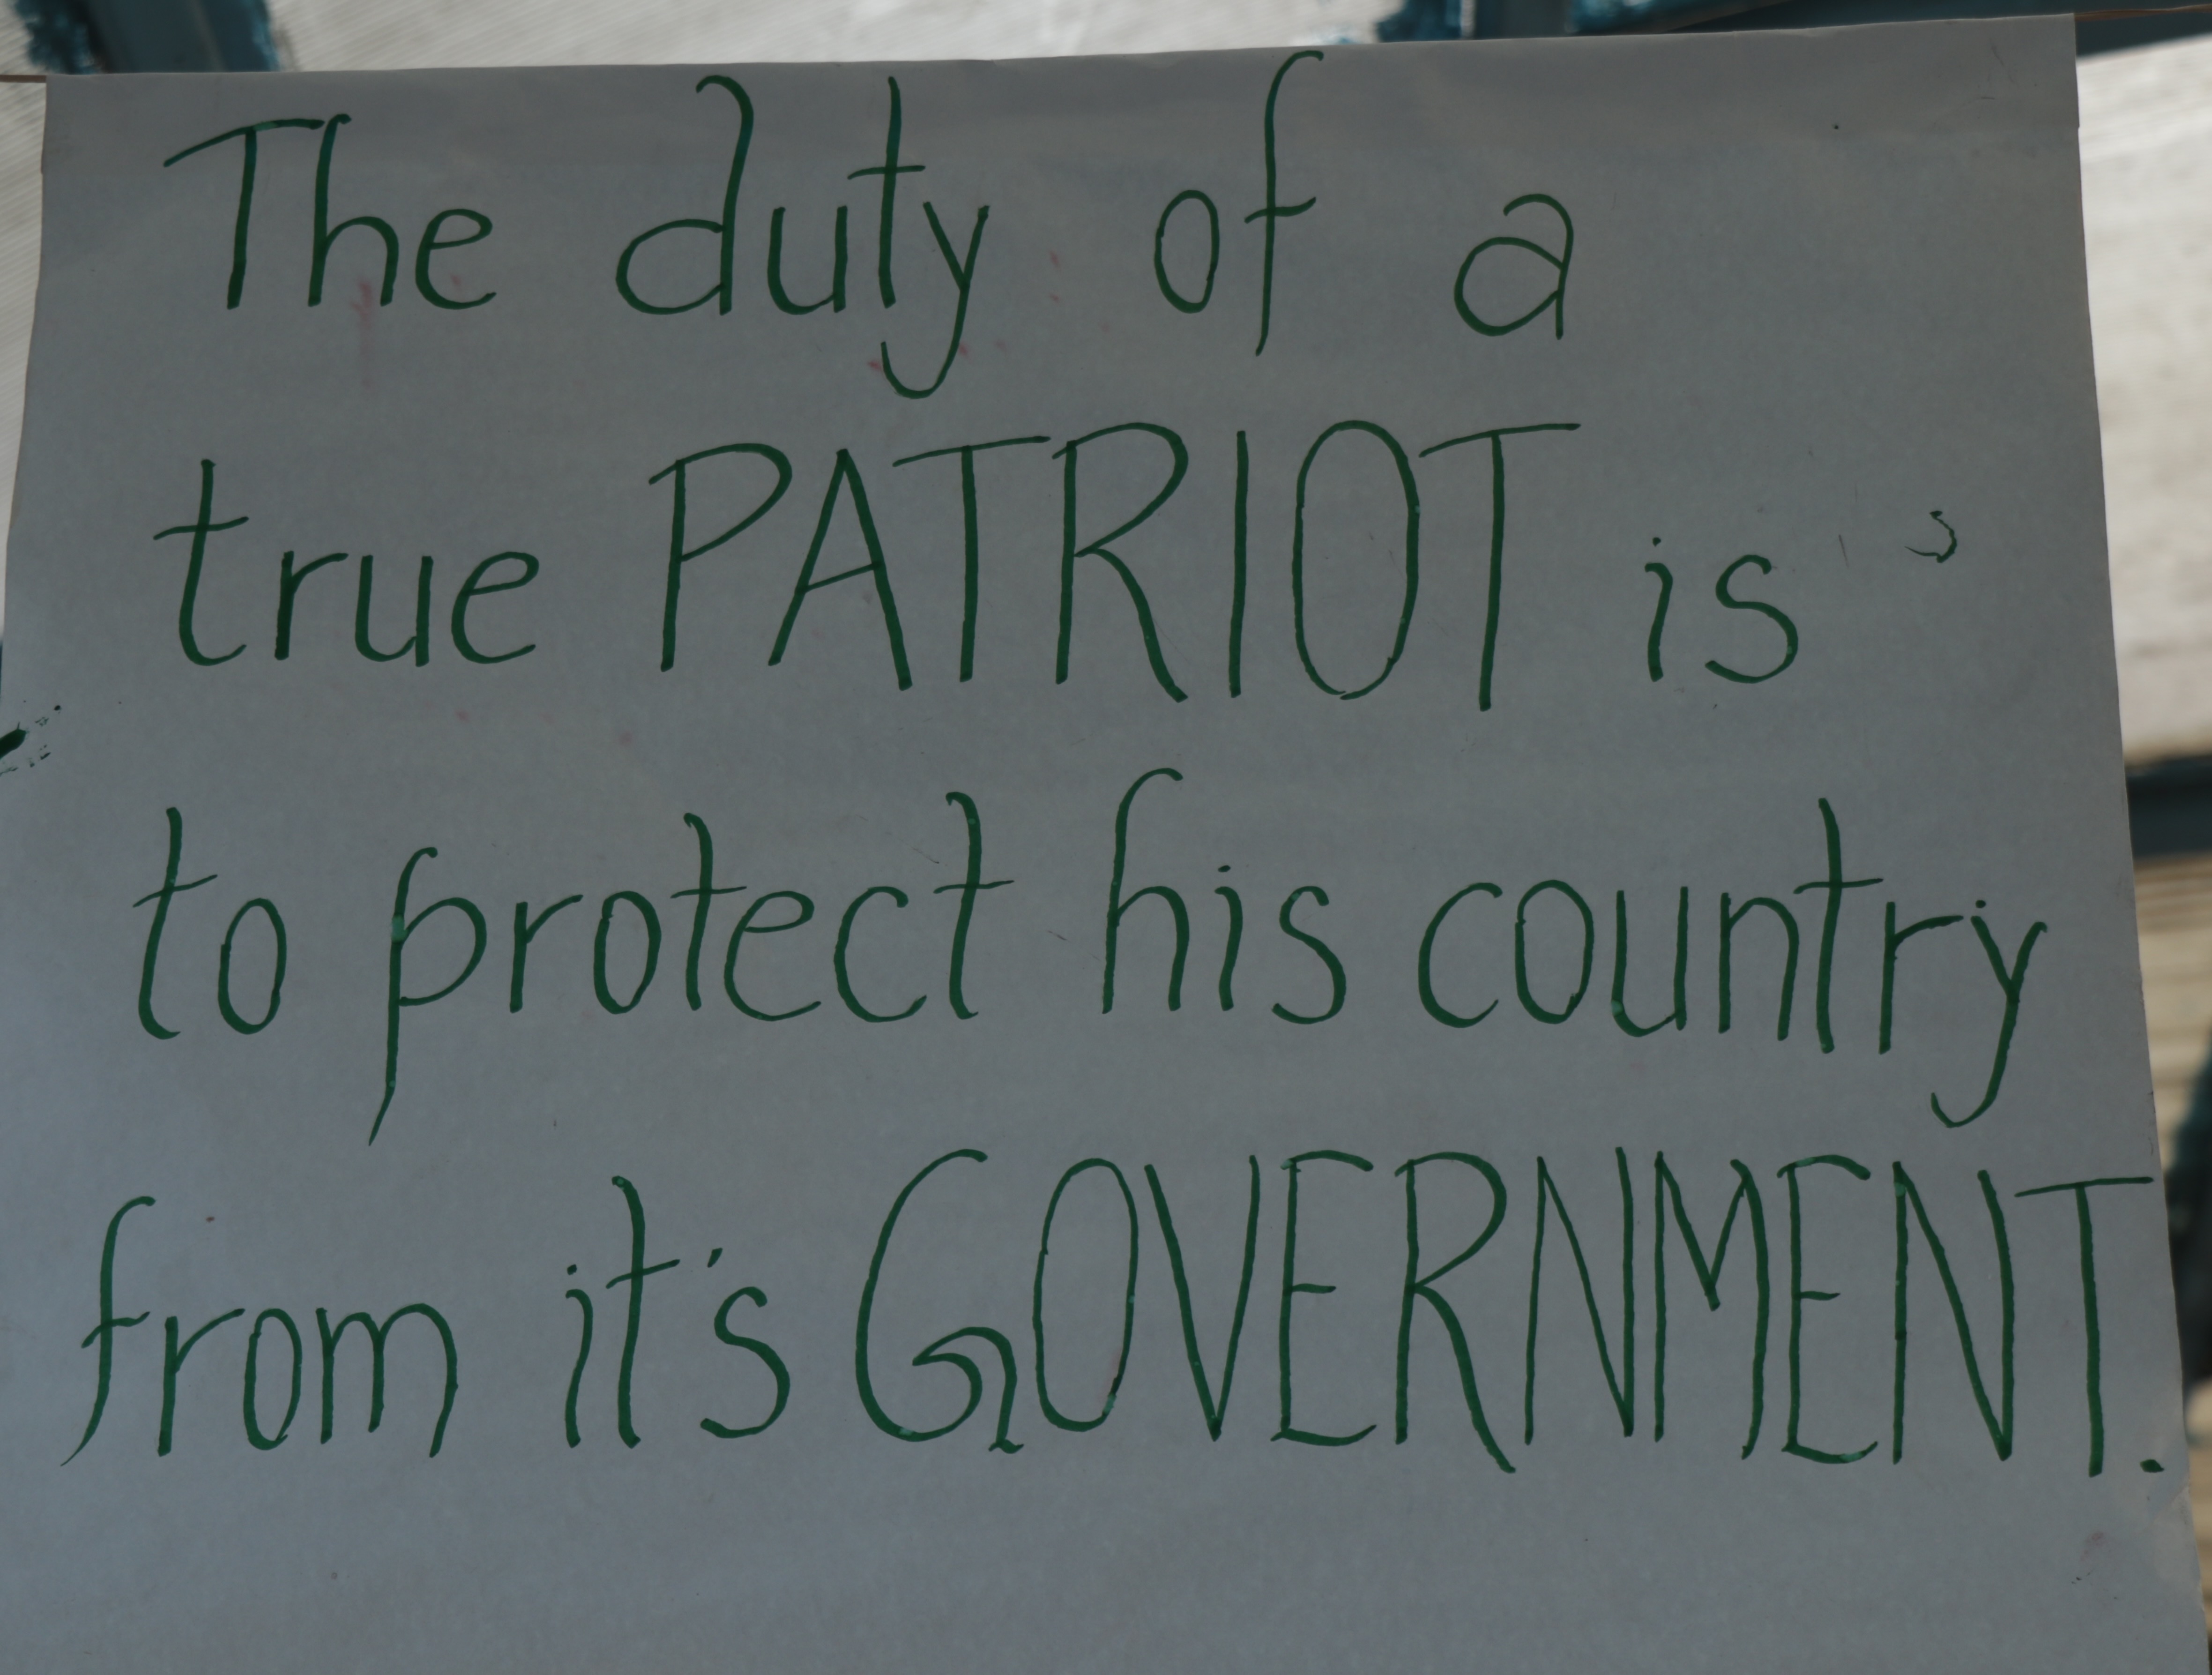 The duty of a
true PATRIOT is
to protect his country
from it's GOVERNMENT.